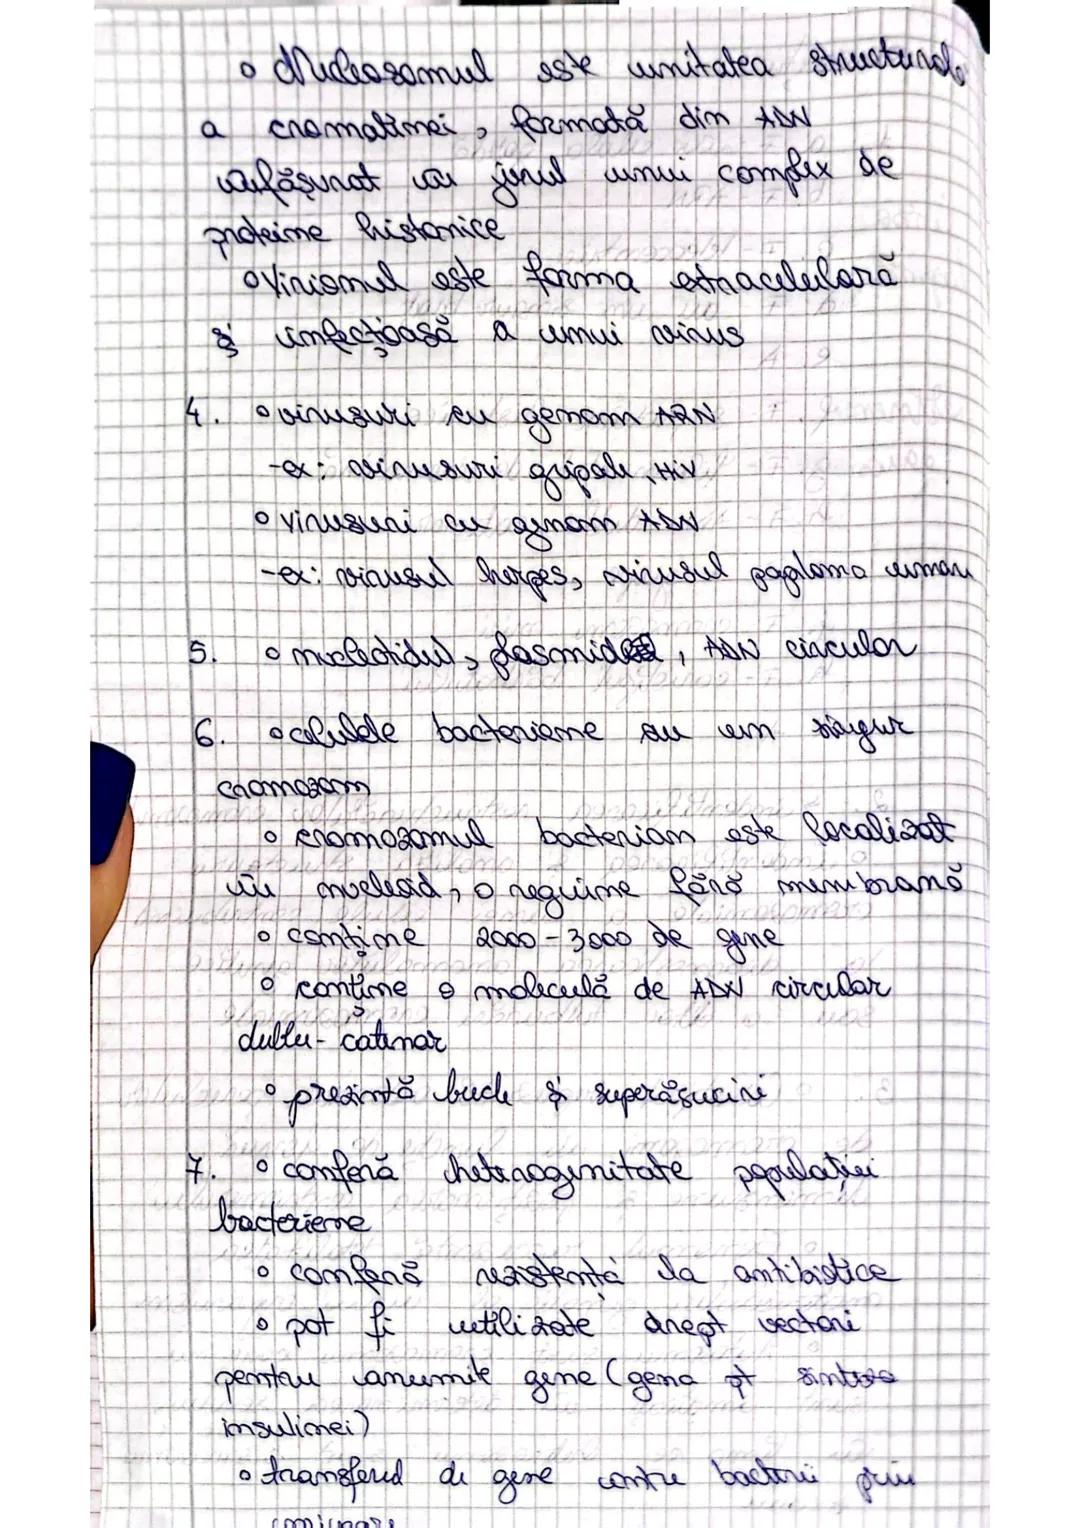 o Nucleosomul este unitatea structurală
a cromatinei, formată din ADN
înfășurat în jurul unui complex de
proteine histonice
o Virionul este forma extracelulară
și infecțioasă a unui virus
4. o virusuri cu genom ARN
-ex: virusuri gripale, HIV
o virusuri cu genom ADN
-ex: virusul herpes, virusul papiloma uman
5. o nucleotidul, plasmide, ADN circular
6. o celulele bacteriene au un singur
cromozom
o cromozomul bacterian este localizat
în nucleoid, o regiune fără membrană
o conține 2000-3000 de gene
o conține o moleculă de ADN circular
dublu-catenar
o prezintă bucle și superrăsuciri
7. o conferă heterogenitate populației
bacteriene
o conferă rezistență la antibiotice
o pot fi utilizate drept vectori
pentru anumite gene (gena pt sinteza
insulinei)
o transferul de gene între bacterii prin